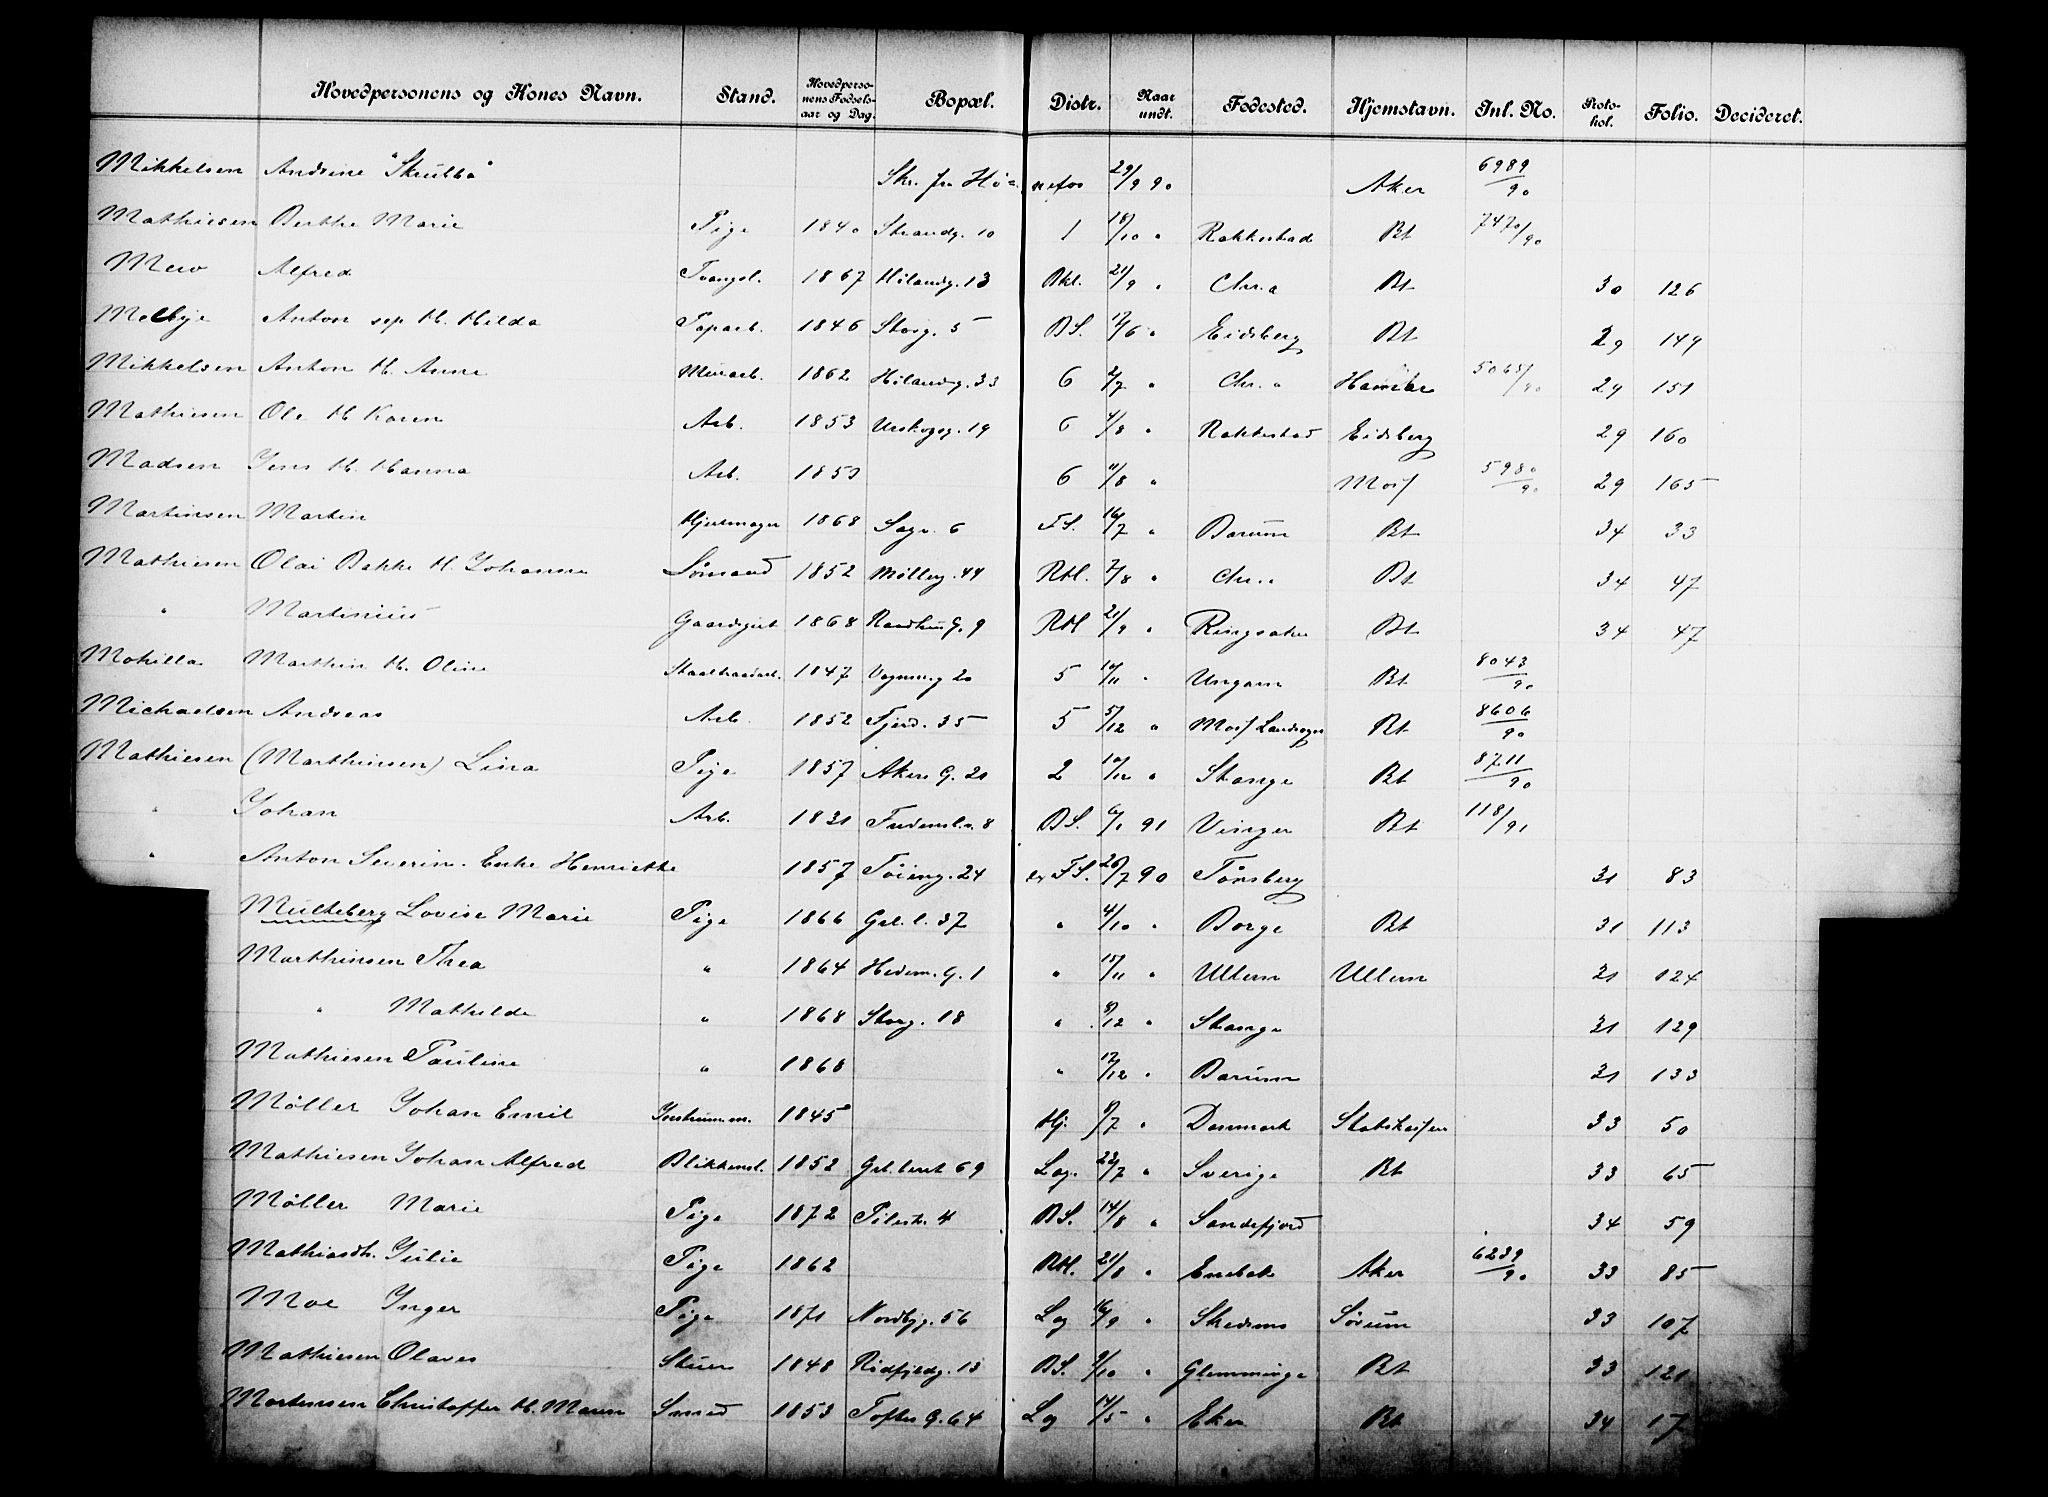 Hovedpersonens og Kones Navn. Stand. Hovedperso-nens Fødsels-aar og Dag. Bopæl. Distr. Naar undt. Fødested. Hjemstavn. Inl. No. Proto-kol. Folio. Decideret.
Mikkelsen Andrine "Skrubba" Skr. fra Hø=nefos 29/9 90 Aker 6989/90
Mathiesen Berthe Marie Pige 1840 Strandg. 10 1 18/10 " Rakkestad Bt 7470/90
Alfred Tvangsl. 1867 Hølandg. 13 Bkl. 21/9 " Chr.a Bt 30 126
Melbye Anton sep M. Hilda Paparb. 1846 Storg. 5 BS. 17/6 " Eidsberg Bt 29 149
Mikkelsen Anton M. Anne Murarb. 1862 Hølandsg. 33 6 2/7 " Chr. a 29 151
Mathiesen Ole M Karen Arb. 1853 Urskogg. 19 6 4/8 " Rakkestad Eidsberg 29 160
Madsen Jens M. Hanna Arb. 1853 6 11/8 " Moss 5980/90 29 165
Martinsen Martin Hjulmager 1868 Sagv. 6 FS. 16/7 " Bærum Bt 34 33
Mathiesen Olai Bakke M. Johanne Sømand 1852 Møllerg. 44 Rbl. 7/8 " Chr.a Bt 34 47
" Martinius Gaardsgut 1868 G. 9 Rbl 21/9 " Ringsaker Bt 34 47
Mokilla Marthin M. Oline Staaltraadarb. 1847 Vognm.g 20 5 10/11 " Ungarn Bt 8043/90
Michaelsen Andreas Arb. 1852 Fjerd. 35 5 5/12 " Moss Landsogn Bt 8606/90
Mathiesen (Marthinsen) Lina Pige 1857 Akers G. 20 2 10/12 " Stange Bt 8711/90
" Johan Arb. 1831 8 BS. 6/1 91 Vinger Bt 118/91
" Anton Severin. Enke Henriette 1857 Tøieng. 24 FS. 26/7 90 Tønsberg 31 83
Multeberg Lovise Marie Pige 1866 Grl. l. 37 " 4/10 " Borge Bt 31 113
Marthinsen Thea " 1864 Hedem. G. 1 " 15/11 " Ullern Ullern 31 124
" Mathilde " 1868 Storg. 18 " 8/12 " Stange 31 129
Mathiesen Pauline " 1868 " 12/12 " Bærum 31 133
Møller Johan Emil Instrumm. 1845 Hj. 9/7 " Danmark Statskassen 33 50
Mathiesen Johan Alfred Blikkensl. 1852 Grl. leret 69 Lag. 23/7 " Sverige Bt 33 65
Møller Marie Pige 1872 Pilestr. 4 BS. 14/8 " Sandefjord 34 59
Mathiasdtr. Julie Pige 1862 Rbl. 21/8 " Enebak Aker 6239/90 33 85
Moe Inger Pige 1871 Nordbyg. 56 Lag 16/9 " Skedsmo Sørum 33 107
Mathiesen Olaves Stuer 1848 Rødfyldg. 13 BS. 9/10 " Glemminge Bt 33 121
Mortensen Christoffer M. Maren Smed 1853 Toftes G. 64 Lag 14/5 " Eker Bt 34 17